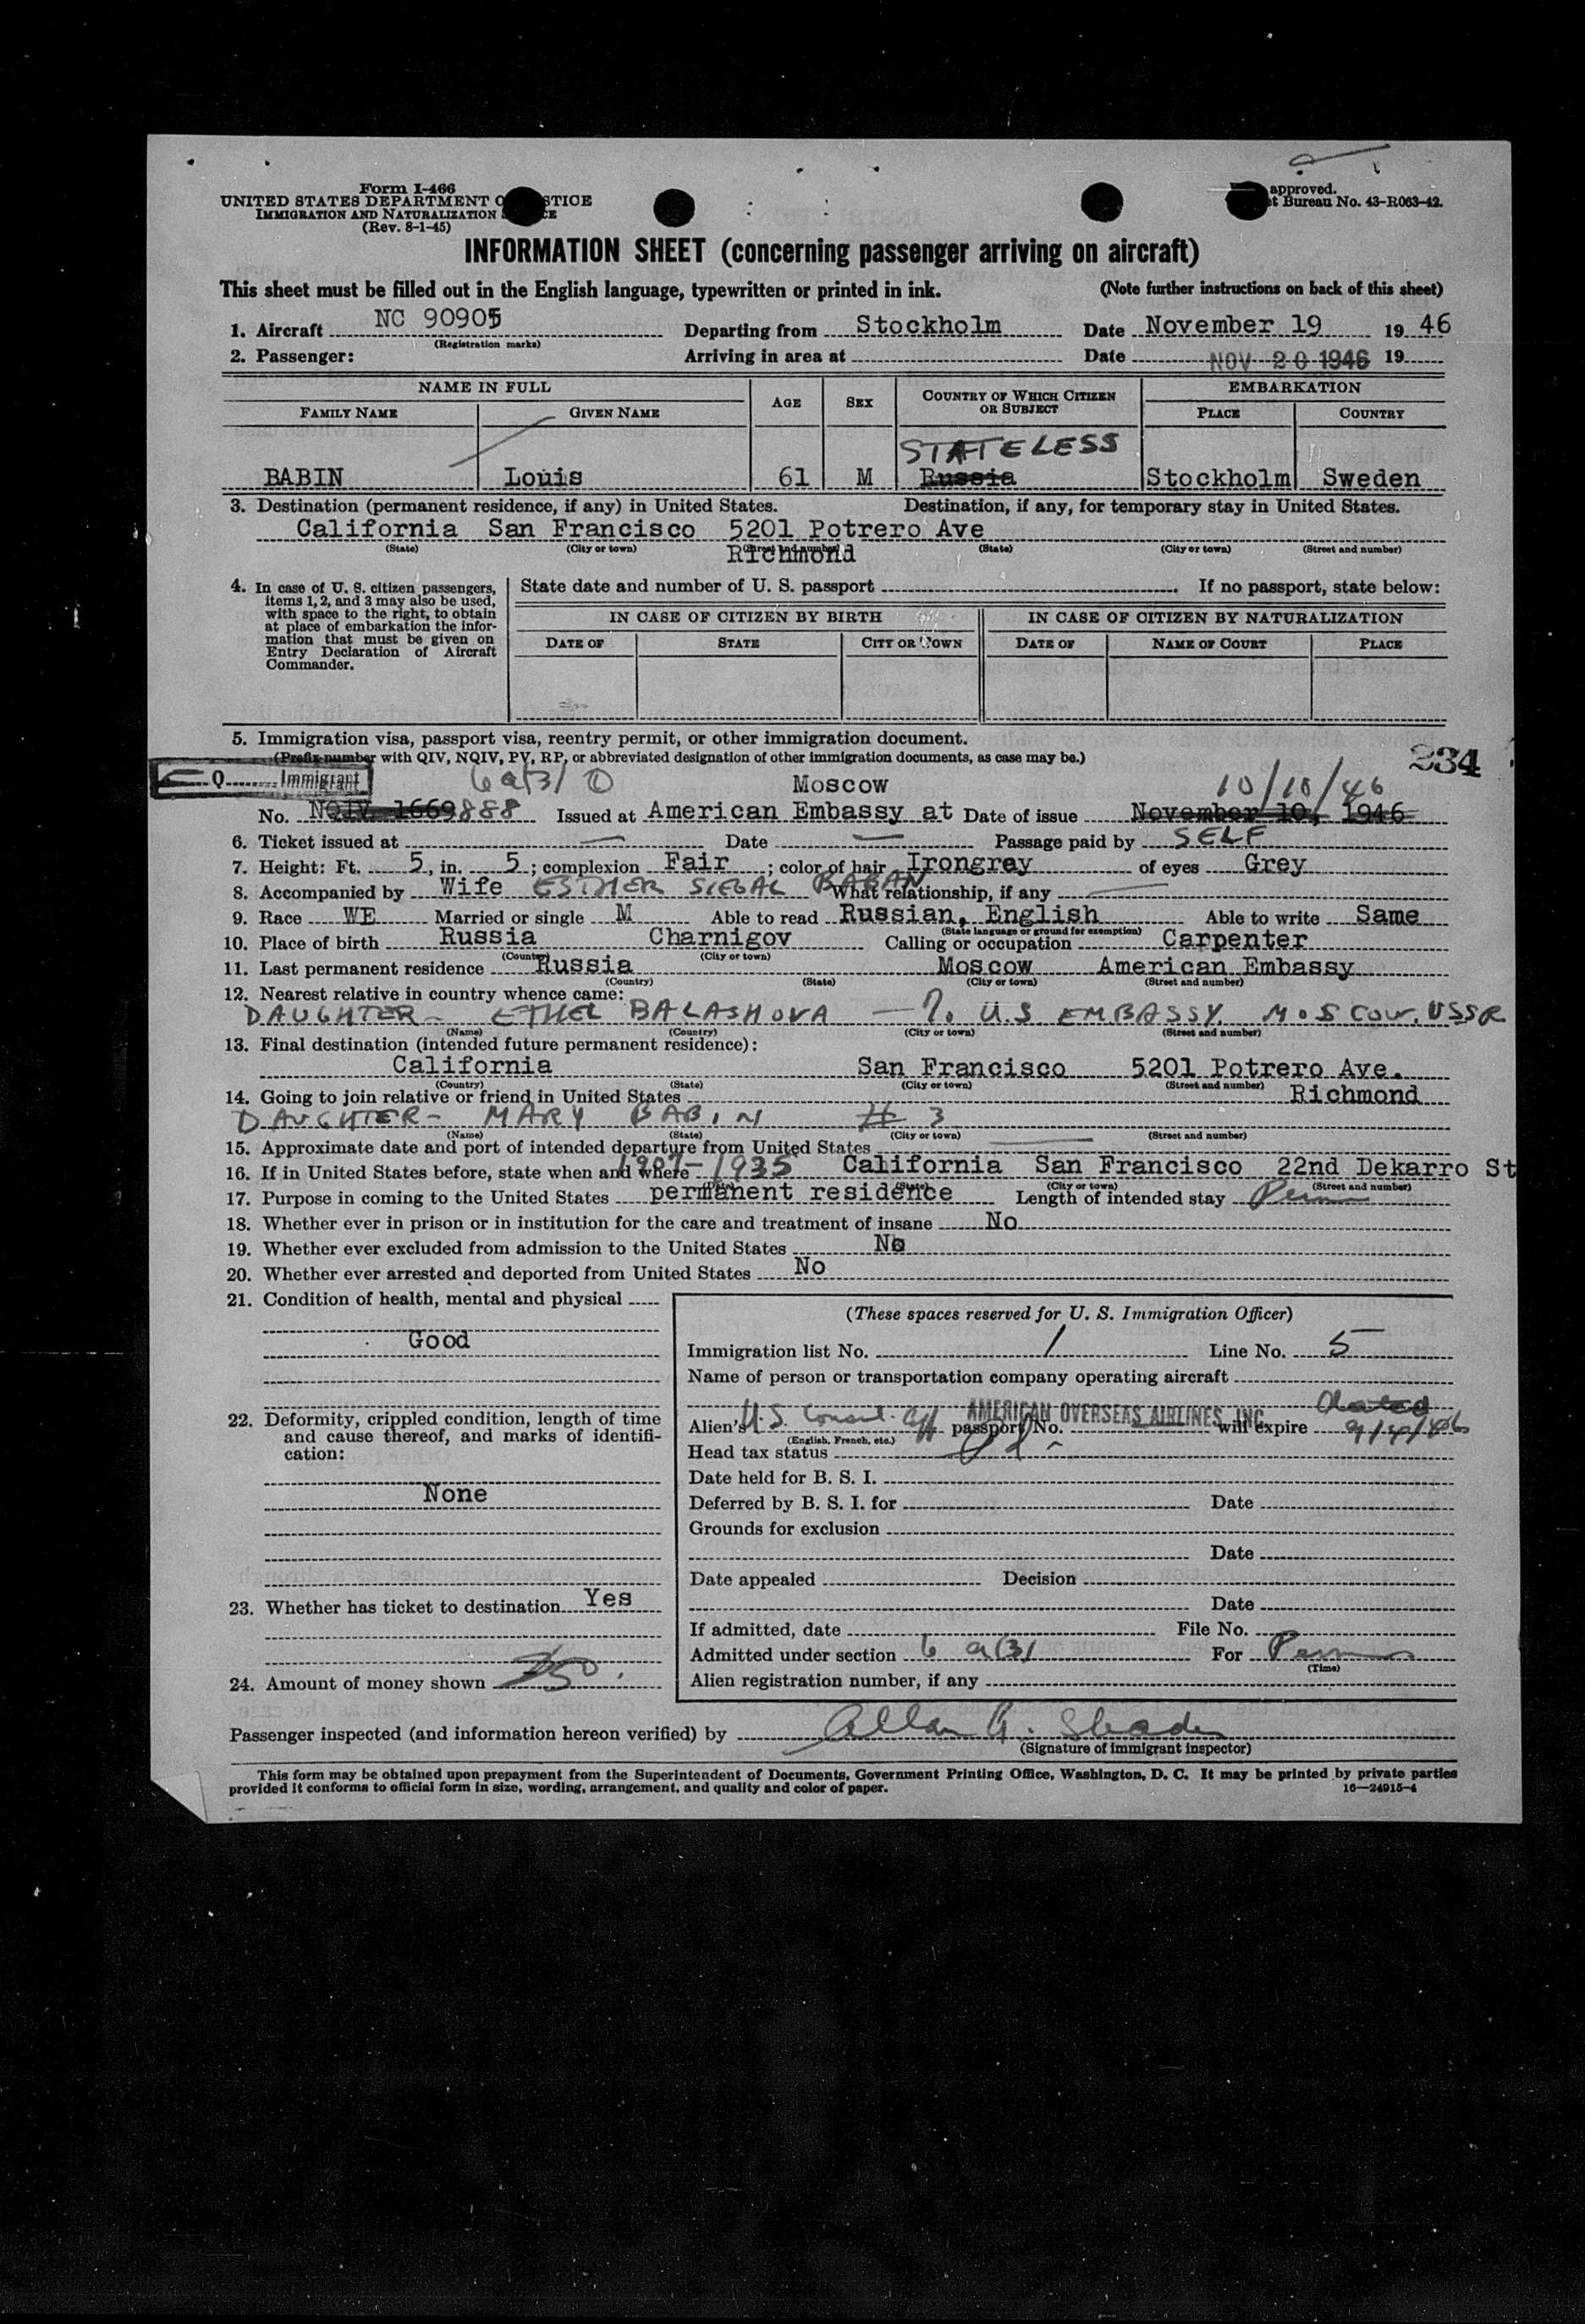 Form I-466
UNITED STATES DEPARTMENT OF JUSTICE
IMMIGRATION AND NATURALIZATION
(Rev. 8-1-45)
approved.
Bureau No. 43-R063-42.
INFORMATION SHEET (concerning passenger arriving on aircraft)
This sheet must be filled out in the English language, typewritten or printed in ink. (Note further instructions on back of this sheet)
1. Aircraft NC 90905 Departing from Stockholm Date November 19 19 46
(Registration marks)
2. Passenger: Arriving in area at Date NOV 20 1946 19
NAME IN FULL AGE SEX COUNTRY OF WHICH CITIZEN OR SUBJECT EMBARKATION
FAMILY NAME GIVEN NAME PLACE COUNTRY
STATELESS
BABIN Louis 61 M Russia Stockholm Sweden
3. Destination (permanent residence, if any) in United States. Destination, if any, for temporary stay in United States.
California San Francisco 5201 Potrero Ave
(State) (City or town) (Street and number) (State) (City or town) (Street and number)
Richmond
4. In case of U. S. citizen passengers, items 1, 2, and 3 may also be used, with space to the right, to obtain at place of embarkation the information that must be given on Entry Declaration of Aircraft Commander.
State date and number of U. S. passport If no passport, state below:
IN CASE OF CITIZEN BY BIRTH IN CASE OF CITIZEN BY NATURALIZATION
DATE OF STATE CITY OR TOWN DATE OF NAME OF COURT PLACE
5. Immigration visa, passport visa, reentry permit, or other immigration document.
(Prefix number with QIV, NQIV, PV, RP, or abbreviated designation of other immigration documents, as case may be.)
234
Q Immigrant 6a(3) Moscow 10/10/46
No. NQIV 1669 888 Issued at American Embassy at Date of issue November 10, 1946
6. Ticket issued at Date Passage paid by SELF
7. Height: Ft. 5, in. 5; complexion Fair; color of hair Irongrey of eyes Grey
8. Accompanied by Wife ESTHER SIEGAL BABAN What relationship, if any
9. Race WE Married or single M Able to read Russian, English Able to write Same
(State language or ground for exemption)
10. Place of birth Russia Charnigov Calling or occupation Carpenter
(Country) (City or town)
11. Last permanent residence Russia Moscow American Embassy
(Country) (State) (City or town) (Street and number)
12. Nearest relative in country whence came:
DAUGHTER - ETHEL BALASHOVA - %. U.S EMBASSY. MOSCOW. USSR
(Name) (Country) (City or town) (Street and number)
13. Final destination (intended future permanent residence):
California San Francisco 5201 Potrero Ave.
(Country) (State) (City or town) (Street and number)
14. Going to join relative or friend in United States Richmond
DAUGHTER - MARY BABIN # 3
(Name) (State) (City or town) (Street and number)
15. Approximate date and port of intended departure from United States
16. If in United States before, state when and where 1907-1935 California San Francisco 22nd Dekarro St
(Date) (State) (City or town) (Street and number)
17. Purpose in coming to the United States permanent residence Length of intended stay Perm
18. Whether ever in prison or in institution for the care and treatment of insane No
19. Whether ever excluded from admission to the United States No
20. Whether ever arrested and deported from United States No
21. Condition of health, mental and physical
Good
22. Deformity, crippled condition, length of time and cause thereof, and marks of identification:
None
23. Whether has ticket to destination Yes
24. Amount of money shown 350.
(These spaces reserved for U. S. Immigration Officer)
Immigration list No. 1 Line No. 5
Name of person or transportation company operating aircraft
AMERICAN OVERSEAS AIRLINES, INC.
Alien's U.S. Consul. Aff passport No. will expire 9/4/46
(English, French, etc.)
Head tax status
Date held for B. S. I.
Deferred by B. S. I. for Date
Grounds for exclusion
Date
Date appealed Decision
Date
If admitted, date File No.
Admitted under section 6 a(3) For Perm
(Time)
Alien registration number, if any
Passenger inspected (and information hereon verified) by Allan G.
(Signature of immigrant inspector)
This form may be obtained upon prepayment from the Superintendent of Documents, Government Printing Office, Washington, D. C. It may be printed by private parties
provided it conforms to official form in size, wording, arrangement, and quality and color of paper. 16—24915-4